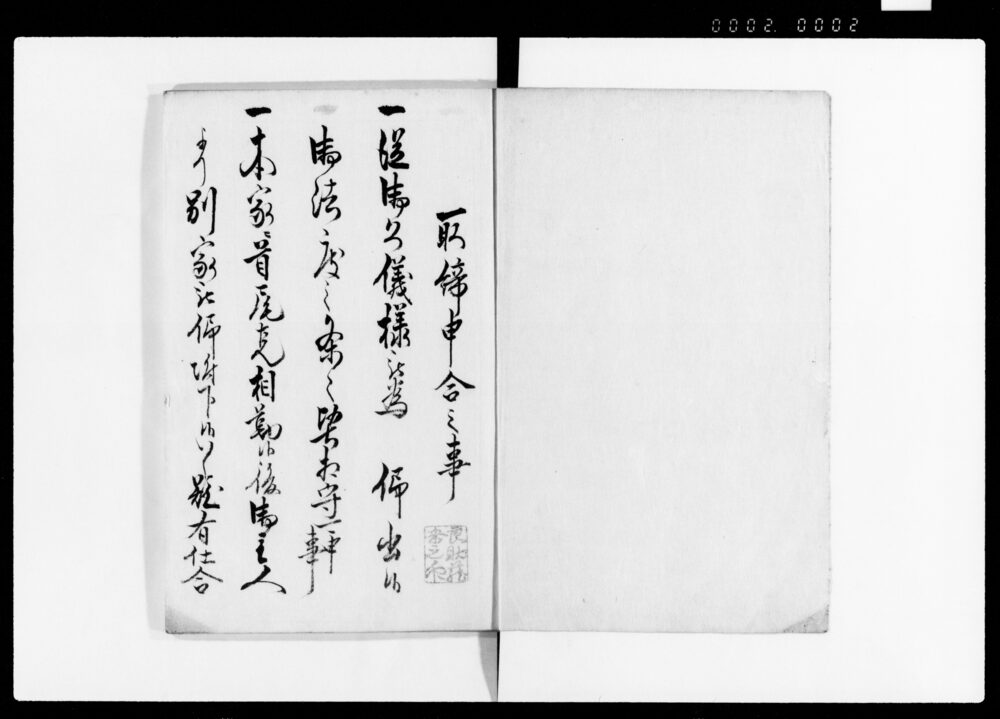 0002 0002
一取締申合之事
一従御公儀様被為 仰出候
御法度之条々堅相守可申事
一本家ニ首尾克相勤候後御主人
より別家被仰附下候ハヽ難有仕合